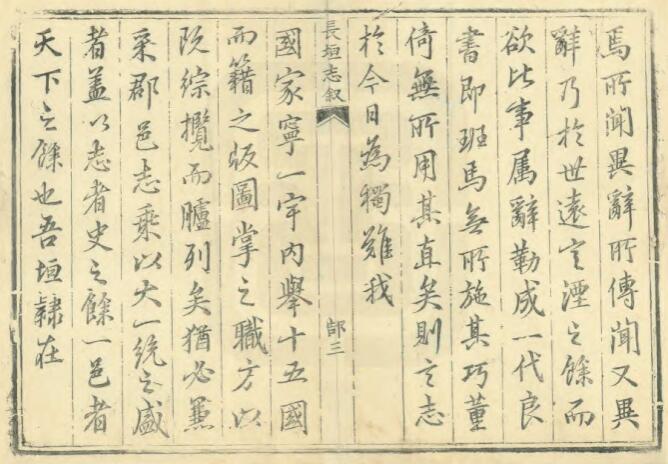 焉所聞異辭所傳聞又異
辭乃於世遠言湮之餘而
欲比事属辭勒成一代良
書即班馬無所施其巧董
倚無所用其直矣則言志
於今日為獨難我
長垣志叙
三
國家寧一宇内舉十五國
而籍之版圖掌之職方以
既綜攬而臚列矣猶必蒐
采郡邑志乘以大一統之盛
者蓋以志者史之餘一邑者
天下之餘也吾垣隷在